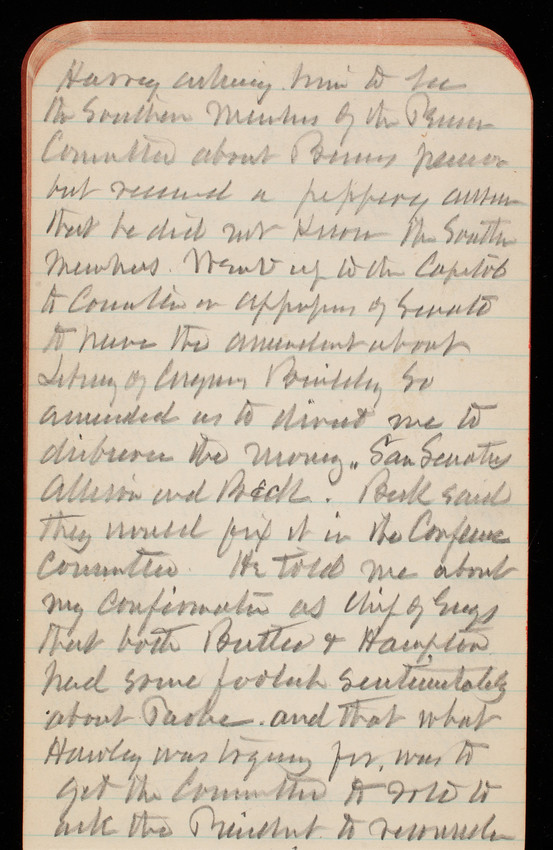 Harvey asking him to see
the Southern Members of the
Committee about pension
but received a peppery answer
that he did not know the Southern
Members. Went up to the Capitol
to Committee on appropns of Senate
to have the amendment about
Library of Congress Building so
amended as to direct me to
disburse the money. Saw Senators
Allison and Beck. Beck said
they would fix it in the Conference
Committee. He told me about
my confirmation as Chief of Engrs
that both Butler & Hampton
had some foolish sentimentality
about and that what
Hawley was trying for, was to
get the Committee to vote to
ask the President to reconsider